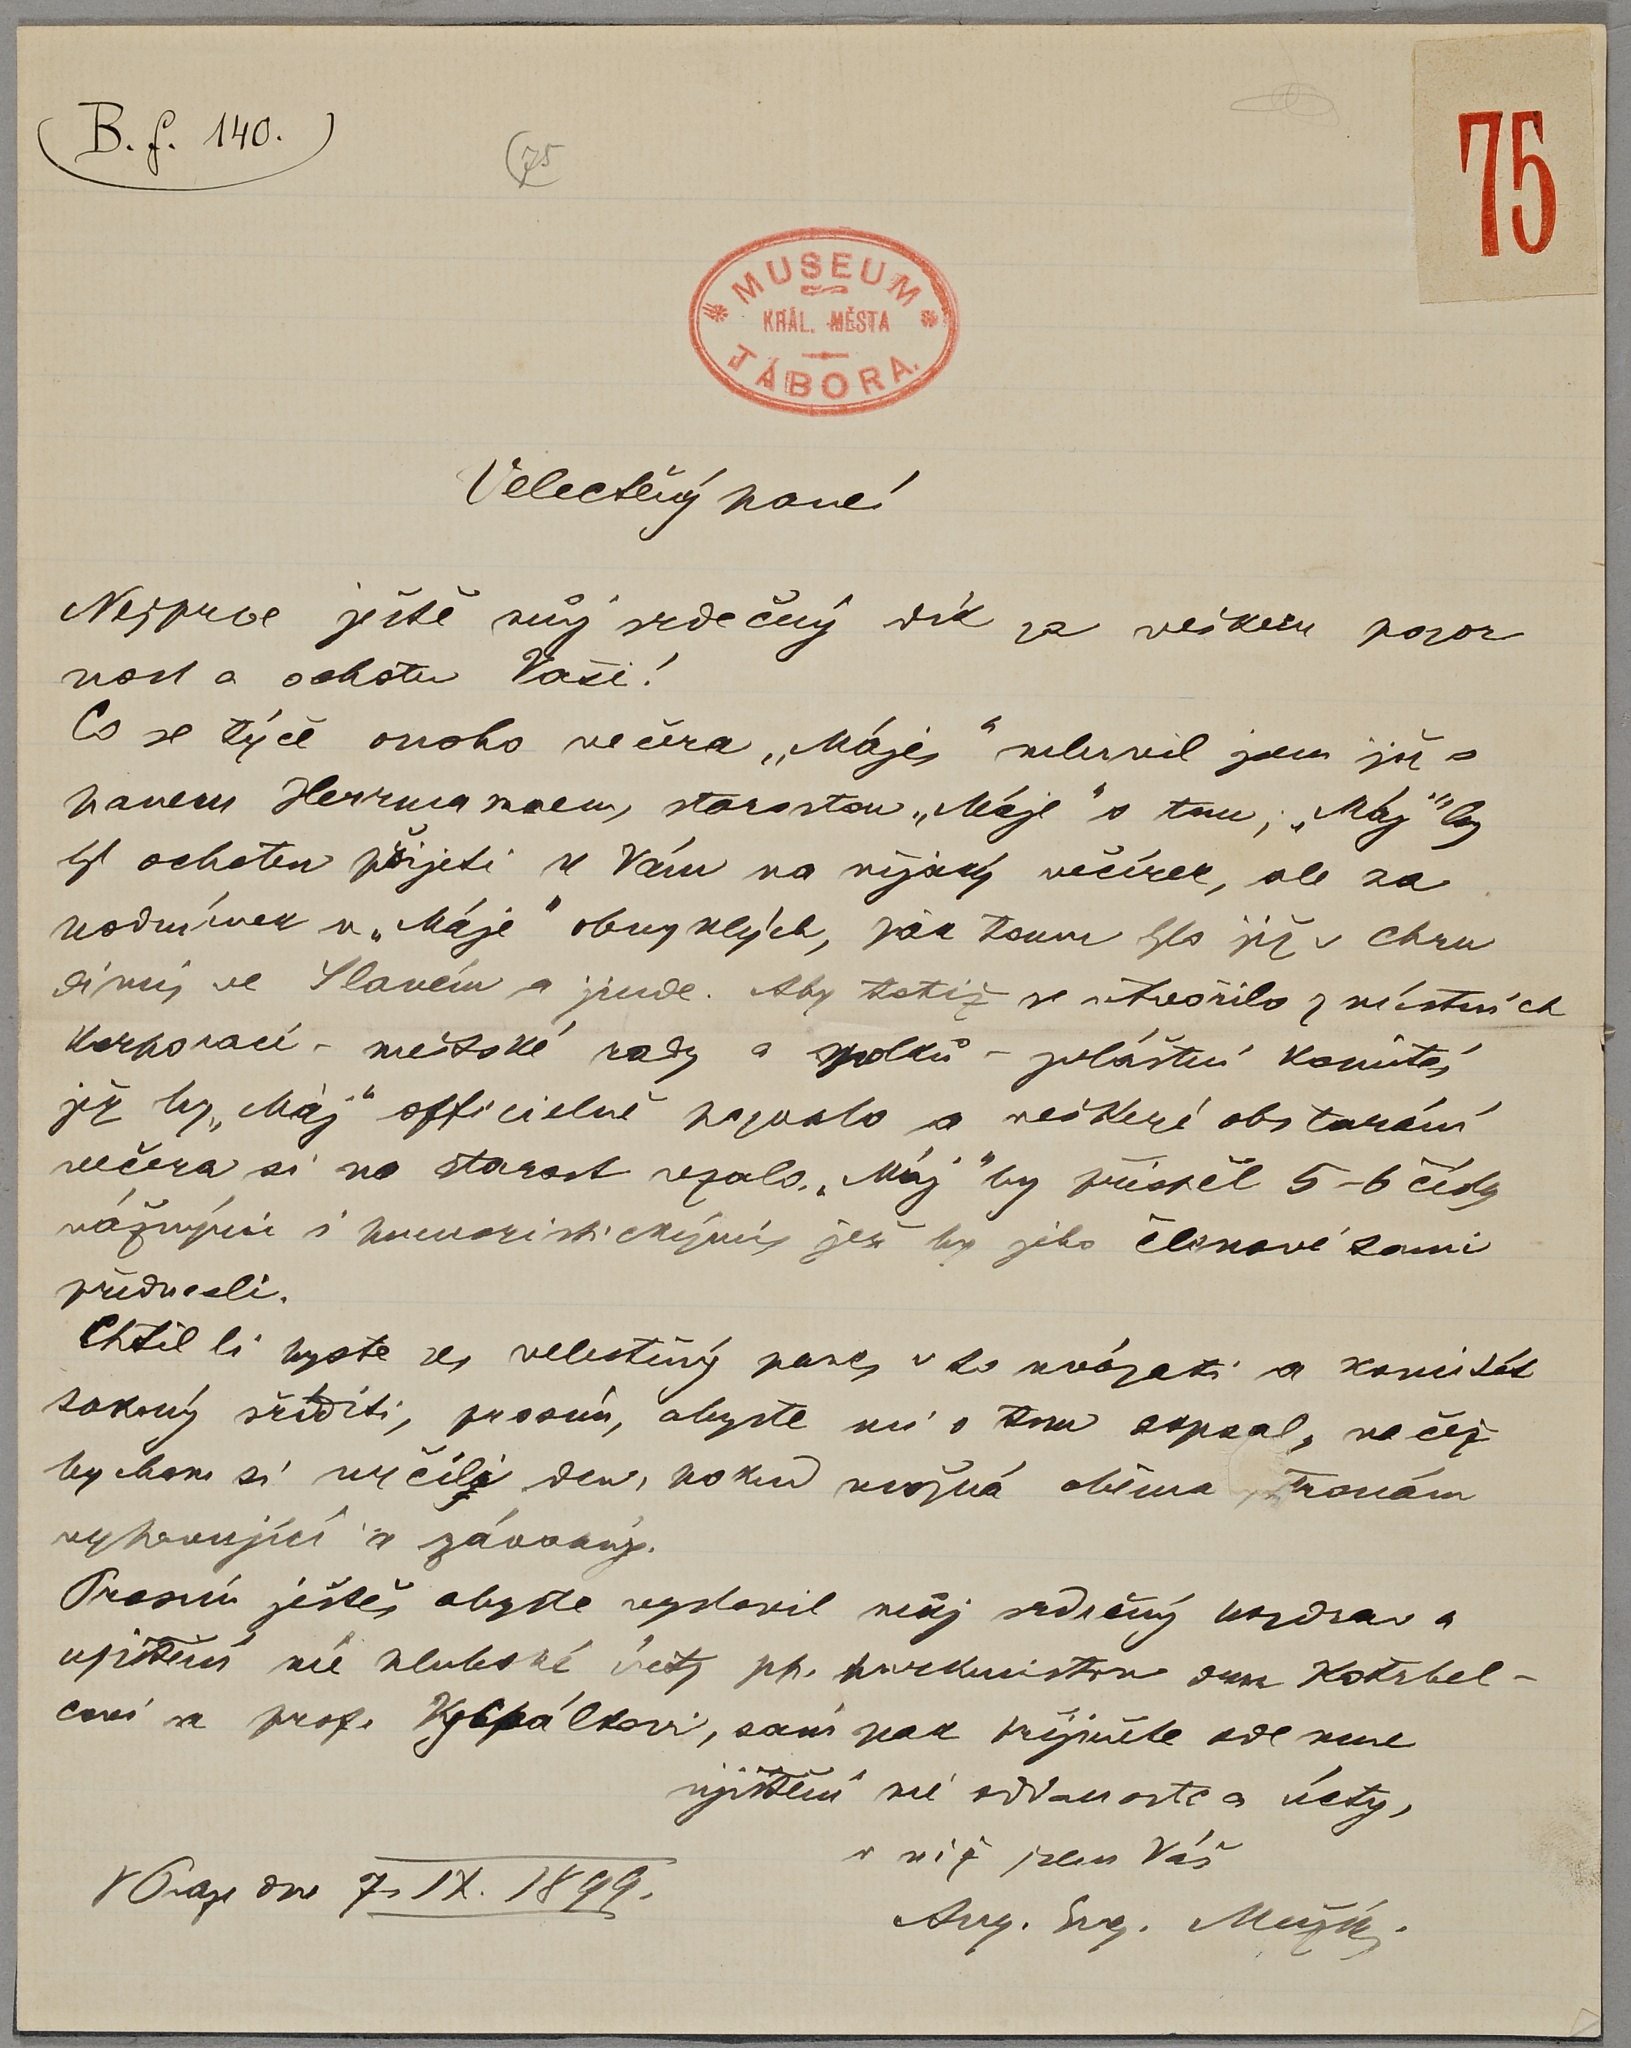 (B. f. 140.)
(75
75
MUSEUM
KRÁL. MĚSTA
TÁBORA.
Velectěný pane!
Nejprve ještě můj srdečný dík za veškeru pozor
nost a ochotu Vaši!
Co se týče onoho večera „Máje," mluvil jsem již s
panem Herrmannem, starostou „Máje" o tom; „Máj" by
byl ochoten přijeti k Vám na nějaký večírek, ale za
podmínek v „Máji" obvyklých, jak tomu bylo již v Chru
dimi, ve Slaném a jinde. Aby totiž se utvořilo z místních
korporací – městské rady a spolků – zvláštní komité,
jež by „Máj" officielně pozvalo a veškeré obstarání
večera si na starost vzalo. „Máj" by přispěl 5–6 čísly
vážnými i humoristickými, jež by jeho členové sami
přednesli.
Chtěl li byste se, velectěný pane, v to uvázati a komitét
takový zříditi, prosím, abyste mi o tom dopsal, načež
bychom si určili den, pokud možná oběma stranám
vyhovující a závazný.
Prosím ještě, abyste vyslovil můj srdečný pozdrav a
ujištění mé hluboké úcty pp. purkmistru dru Kotrbel-
covi a prof. Kybpálkovi, sám pak přijměte ode mne
ujištění mé oddanosti a úcty,
v níž jsem Váš
V Praze dne 7. IX. 1899.
Aug. Eug. Mužík.